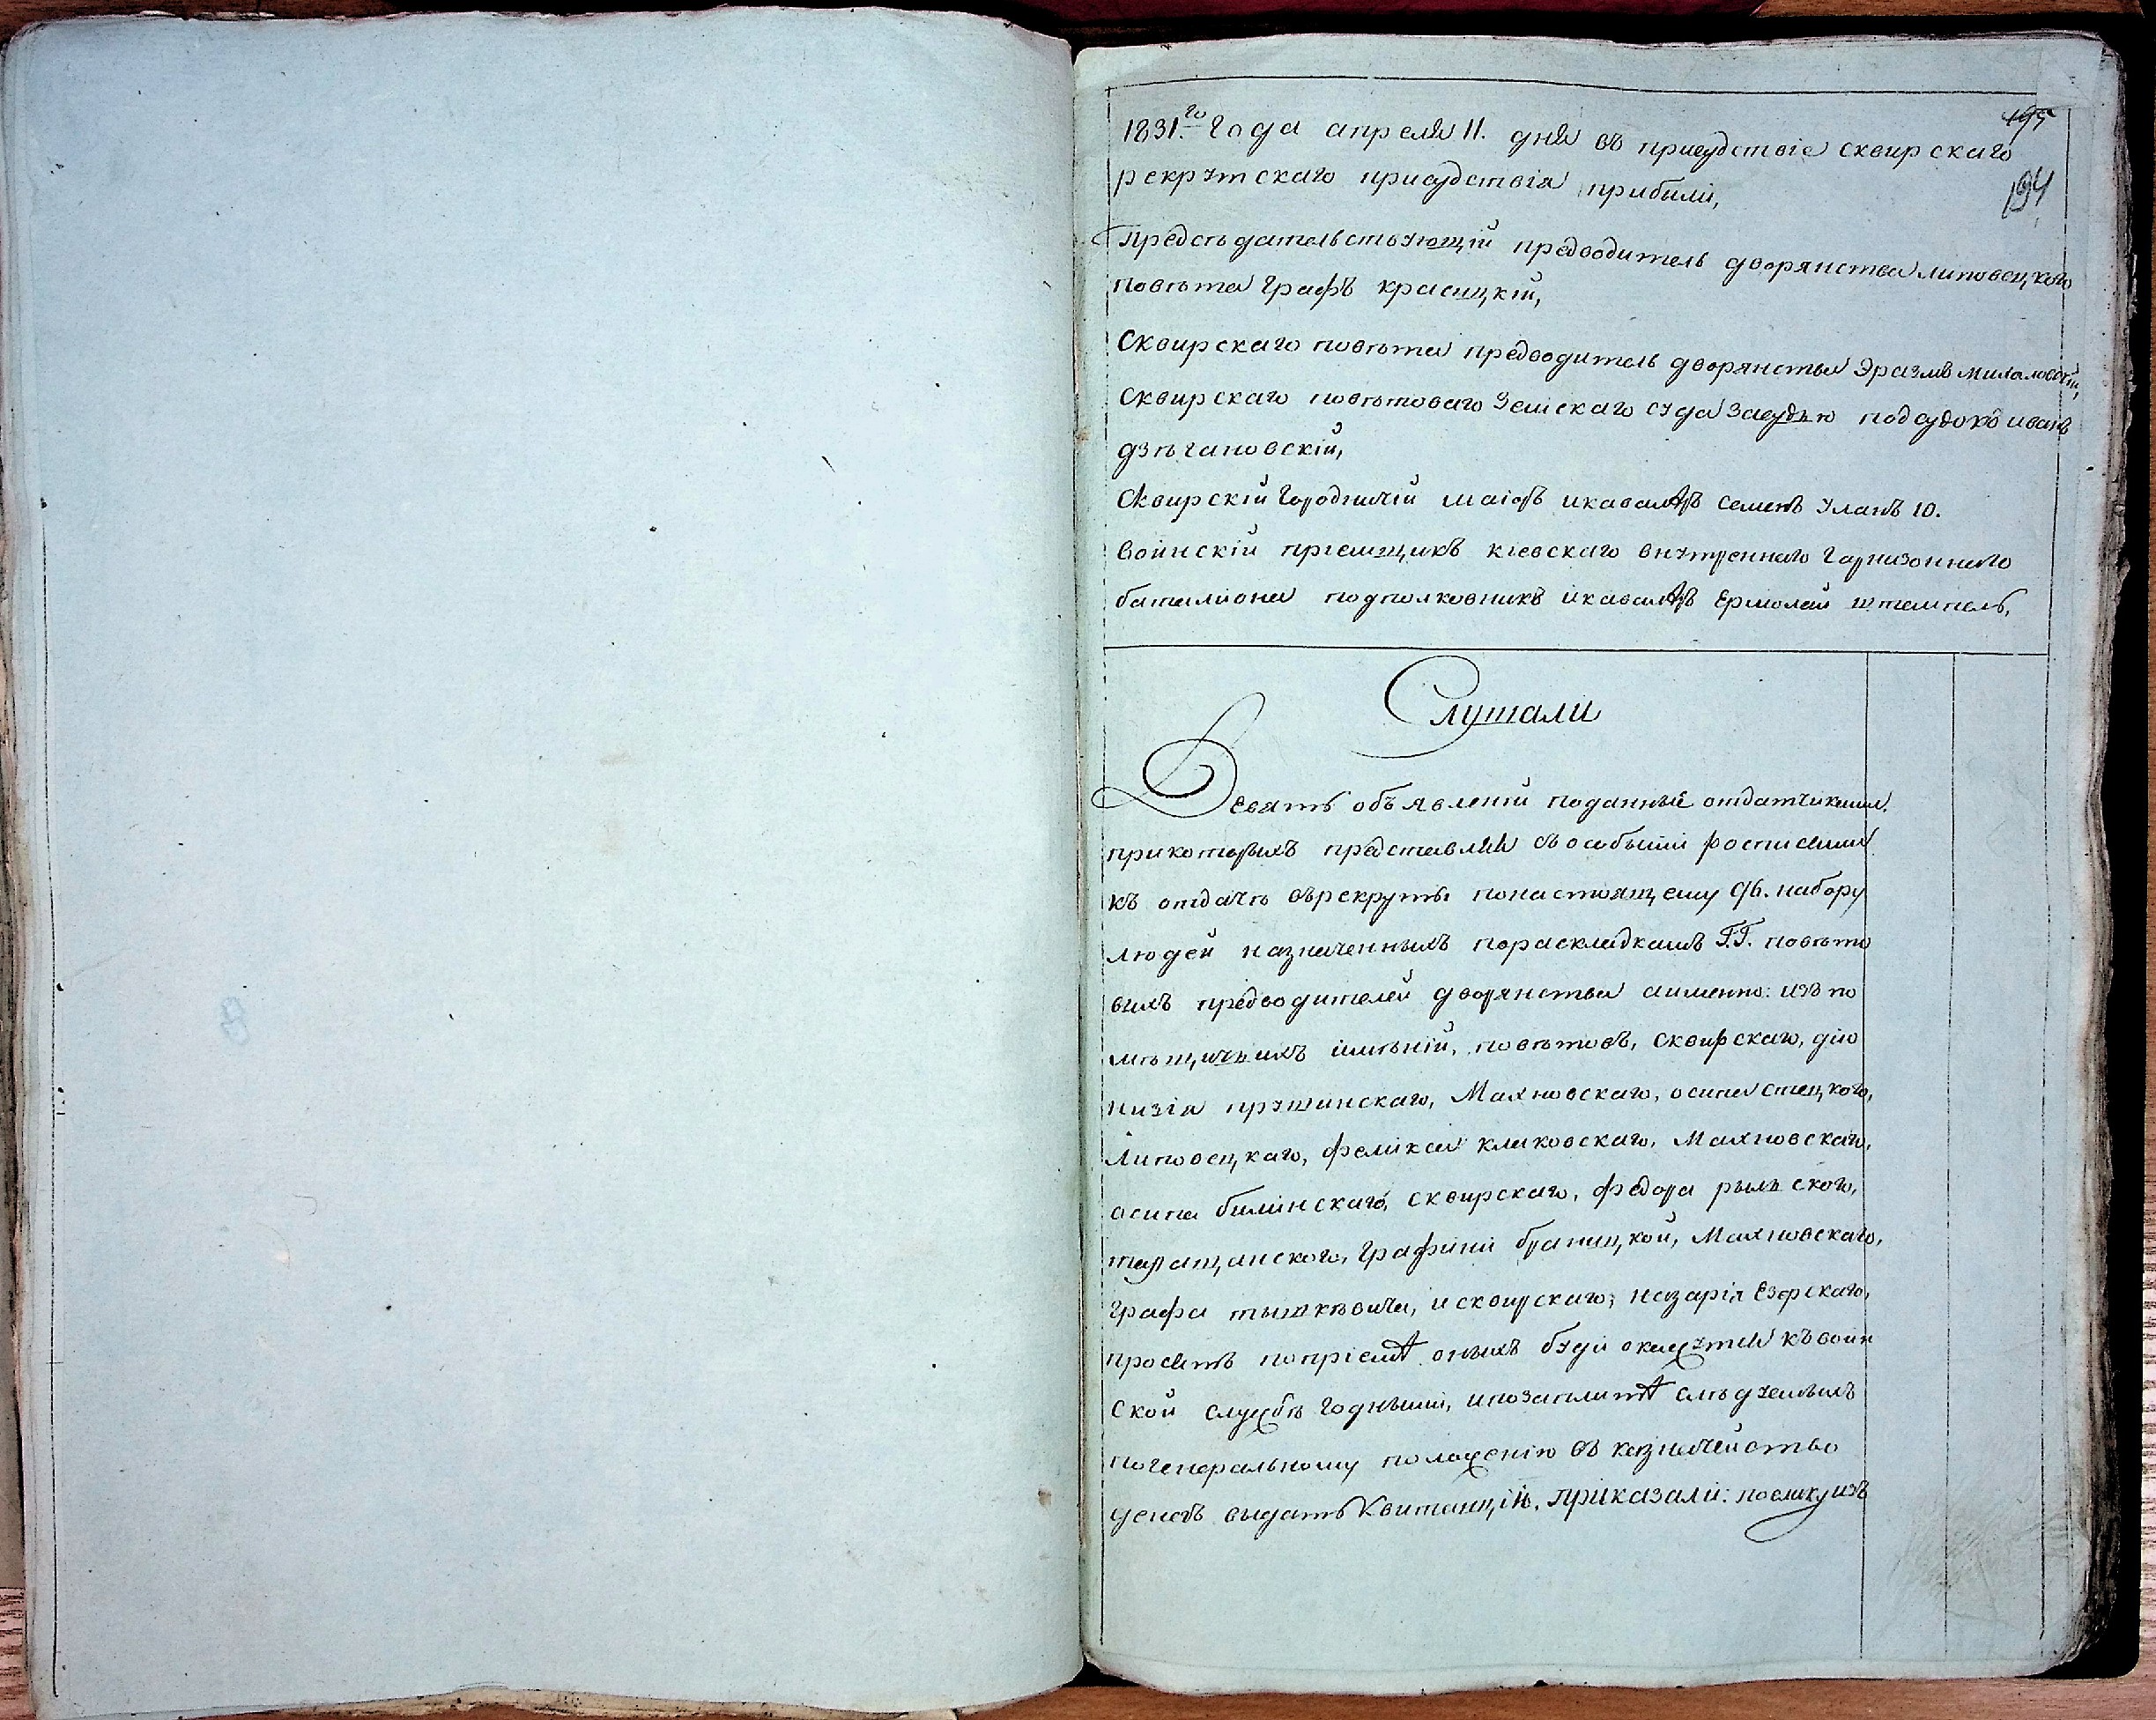 195
1831.го Года апреля 11. дня въ присудствіе сквирскаго
194
рекрутскаго присудствія прибыли,
Предсѣдательствующій предводитель дворянства липовецкого
повѣта Графъ красицкій,
Сквирскаго повѣта предводитель дворянства Эразмъ михаловскій,
Сквирскаго повѣтоваго Земскаго суда Засудью подсудокъ иванъ
дзѣгановскій,
Сквирскій Городничій маіоръ икавалеръ Семенъ Уланъ 10.
Воинскій пріемщикъ кіевскаго внутренняго Гарнизоннаго
баталіона подполковникъ икавалеръ Ермолай штемпель,
Слушали
Девять объявленій поданныя отдатчиками.
прикоторыхъ представляя съособыми росписями
къ отдачѣ върекруты понастоящему 96. набору
людей назначенныхъ пораскладкамъ Г.Г. повѣто
выхъ предводителей дворянства аименно: изъ по
мѣщичьихъ имѣній, повѣтовъ, Сквирскаго, діо
низія прушинскаго, Махновскаго, осипа стецкого,
Липовецкаго, феликса клаковскаго, Махновскаго,
осипа билинскаго, сквирскаго, федора рыльского,
таращанского, Графини браницкой, Махновскаго,
Графа тышкѣвича, исквирскаго, назарія Езерскаго,
просятъ попріемѣ оныхъ буди окажутся къвоин
Ской службѣ Годными, ипозаплатѣ слѣдуемыхъ
погенеральному положенію въ казначейство
денегъ выдать Квитанціи. Приказали: поелику изъ